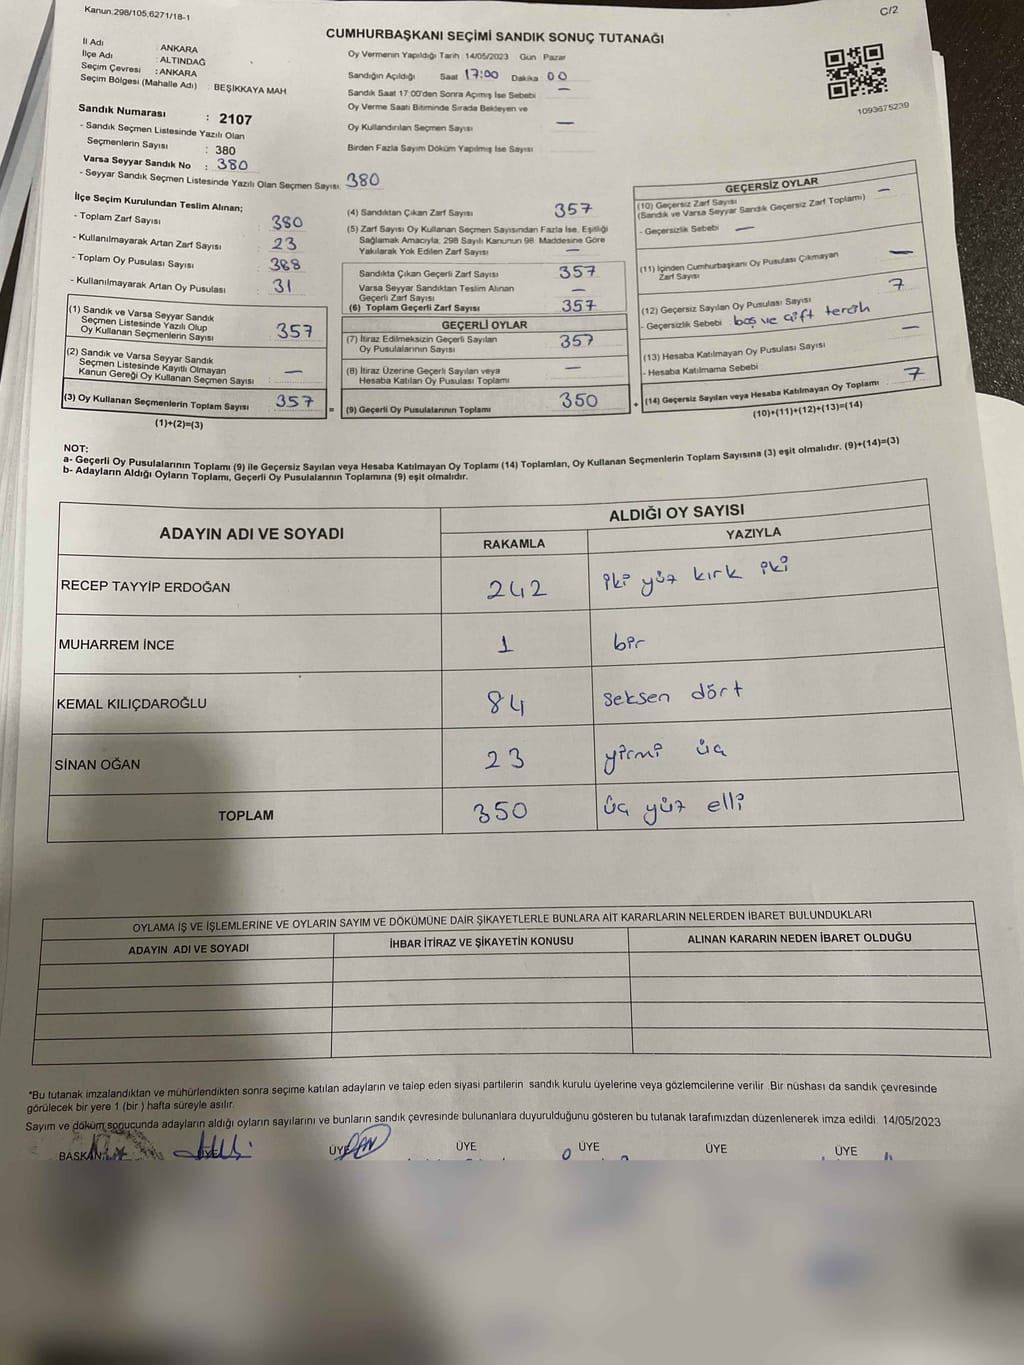 Kanun.298/105.6271/18-1
C/2
CUMHURBAŞKANI SEÇİMİ SANDIK SONUÇ TUTANAĞI
İl Adı : ANKARA
İlçe Adı : ALTINDAĞ
Seçim Çevresi : ANKARA
Seçim Bölgesi (Mahalle Adı) : BEŞİKKAYA MAH
Oy Vermenin Yapıldığı Tarih 14/05/2023 Gün Pazar
Sandığın Açıldığı Saat 17:00 Dakika 00
Sandık Saat 17:00'den Sonra Açımış İse Sebebi —
Oy Verme Saati Bitiminde Sırada Bekleyen ve
Oy Kullandırılan Seçmen Sayısı —
Birden Fazla Sayım Döküm Yapılmış İse Sayısı
1093675239
Sandık Numarası : 2107
- Sandık Seçmen Listesinde Yazılı Olan
Seçmenlerin Sayısı : 380
Varsa Seyyar Sandık No : 380
- Seyyar Sandık Seçmen Listesinde Yazılı Olan Seçmen Sayısı: 380
İlçe Seçim Kurulundan Teslim Alınan;
- Toplam Zarf Sayısı : 380
- Kullanılmayarak Artan Zarf Sayısı : 23
- Toplam Oy Pusulası Sayısı : 388
- Kullanılmayarak Artan Oy Pusulası : 31
(1) Sandık ve Varsa Seyyar Sandık
Seçmen Listesinde Yazılı Olup
Oy Kullanan Seçmenlerin Sayısı 357
(2) Sandık ve Varsa Seyyar Sandık
Seçmen Listesinde Kayıtlı Olmayan
Kanun Gereği Oy Kullanan Seçmen Sayısı —
(3) Oy Kullanan Seçmenlerin Toplam Sayısı 357
(1)+(2)=(3)
=
(4) Sandıktan Çıkan Zarf Sayısı 357
(5) Zarf Sayısı Oy Kullanan Seçmen Sayısından Fazla İse, Eşitliği
Sağlamak Amacıyla, 298 Sayılı Kanunun 98. Maddesine Göre
Yakılarak Yok Edilen Zarf Sayısı —
Sandıkta Çıkan Geçerli Zarf Sayısı 357
Varsa Seyyar Sandıktan Teslim Alınan
Geçerli Zarf Sayısı —
(6) Toplam Geçerli Zarf Sayısı 357
GEÇERLİ OYLAR
(7) İtiraz Edilmeksizin Geçerli Sayılan
Oy Pusulalarının Sayısı 357
(8) İtiraz Üzerine Geçerli Sayılan veya
Hesaba Katılan Oy Pusulası Toplamı —
(9) Geçerli Oy Pusulalarının Toplamı 350
+
GEÇERSİZ OYLAR
(10) Geçersiz Zarf Sayısı —
(Sandık ve Varsa Seyyar Sandık Geçersiz Zarf Toplamı)
- Geçersizlik Sebebi —
(11) İçinden Cumhurbaşkanı Oy Pusulası Çıkmayan
Zarf Sayısı —
(12) Geçersiz Sayılan Oy Pusulası Sayısı 7
- Geçersizlik Sebebi boş ve çift tercih
(13) Hesaba Katılmayan Oy Pusulası Sayısı —
- Hesaba Katılmama Sebebi
(14) Geçersiz Sayılan veya Hesaba Katılmayan Oy Toplamı 7
(10)+(11)+(12)+(13)=(14)
NOT:
a- Geçerli Oy Pusulalarının Toplamı (9) ile Geçersiz Sayılan veya Hesaba Katılmayan Oy Toplamı (14) Toplamları, Oy Kullanan Seçmenlerin Toplam Sayısına (3) eşit olmalıdır. (9)+(14)=(3)
b- Adayların Aldığı Oyların Toplamı, Geçerli Oy Pusulalarının Toplamına (9) eşit olmalıdır.
ADAYIN ADI VE SOYADI
ALDIĞI OY SAYISI
RAKAMLA YAZIYLA
RECEP TAYYİP ERDOĞAN 242 iki yüz kırk iki
MUHARREM İNCE 1 bir
KEMAL KILIÇDAROĞLU 84 seksen dört
SİNAN OĞAN 23 yirmi üç
TOPLAM 350 üç yüz elli
OYLAMA İŞ VE İŞLEMLERİNE VE OYLARIN SAYIM VE DÖKÜMÜNE DAİR ŞİKAYETLERLE BUNLARA AİT KARARLARIN NELERDEN İBARET BULUNDUKLARI
ADAYIN ADI VE SOYADI İHBAR İTİRAZ VE ŞİKAYETİN KONUSU ALINAN KARARIN NEDEN İBARET OLDUĞU
*Bu tutanak imzalandıktan ve mühürlendikten sonra seçime katılan adayların ve talep eden siyasi partilerin sandık kurulu üyelerine veya gözlemcilerine verilir. Bir nüshası da sandık çevresinde
görülecek bir yere 1 (bir) hafta süreyle asılır.
Sayım ve döküm sonucunda adayların aldığı oyların sayılarını ve bunların sandık çevresinde bulunanlara duyurulduğunu gösteren bu tutanak tarafımızdan düzenlenerek imza edildi. 14/05/2023
BAŞKAN ÜYE ÜYE ÜYE ÜYE ÜYE ÜYE